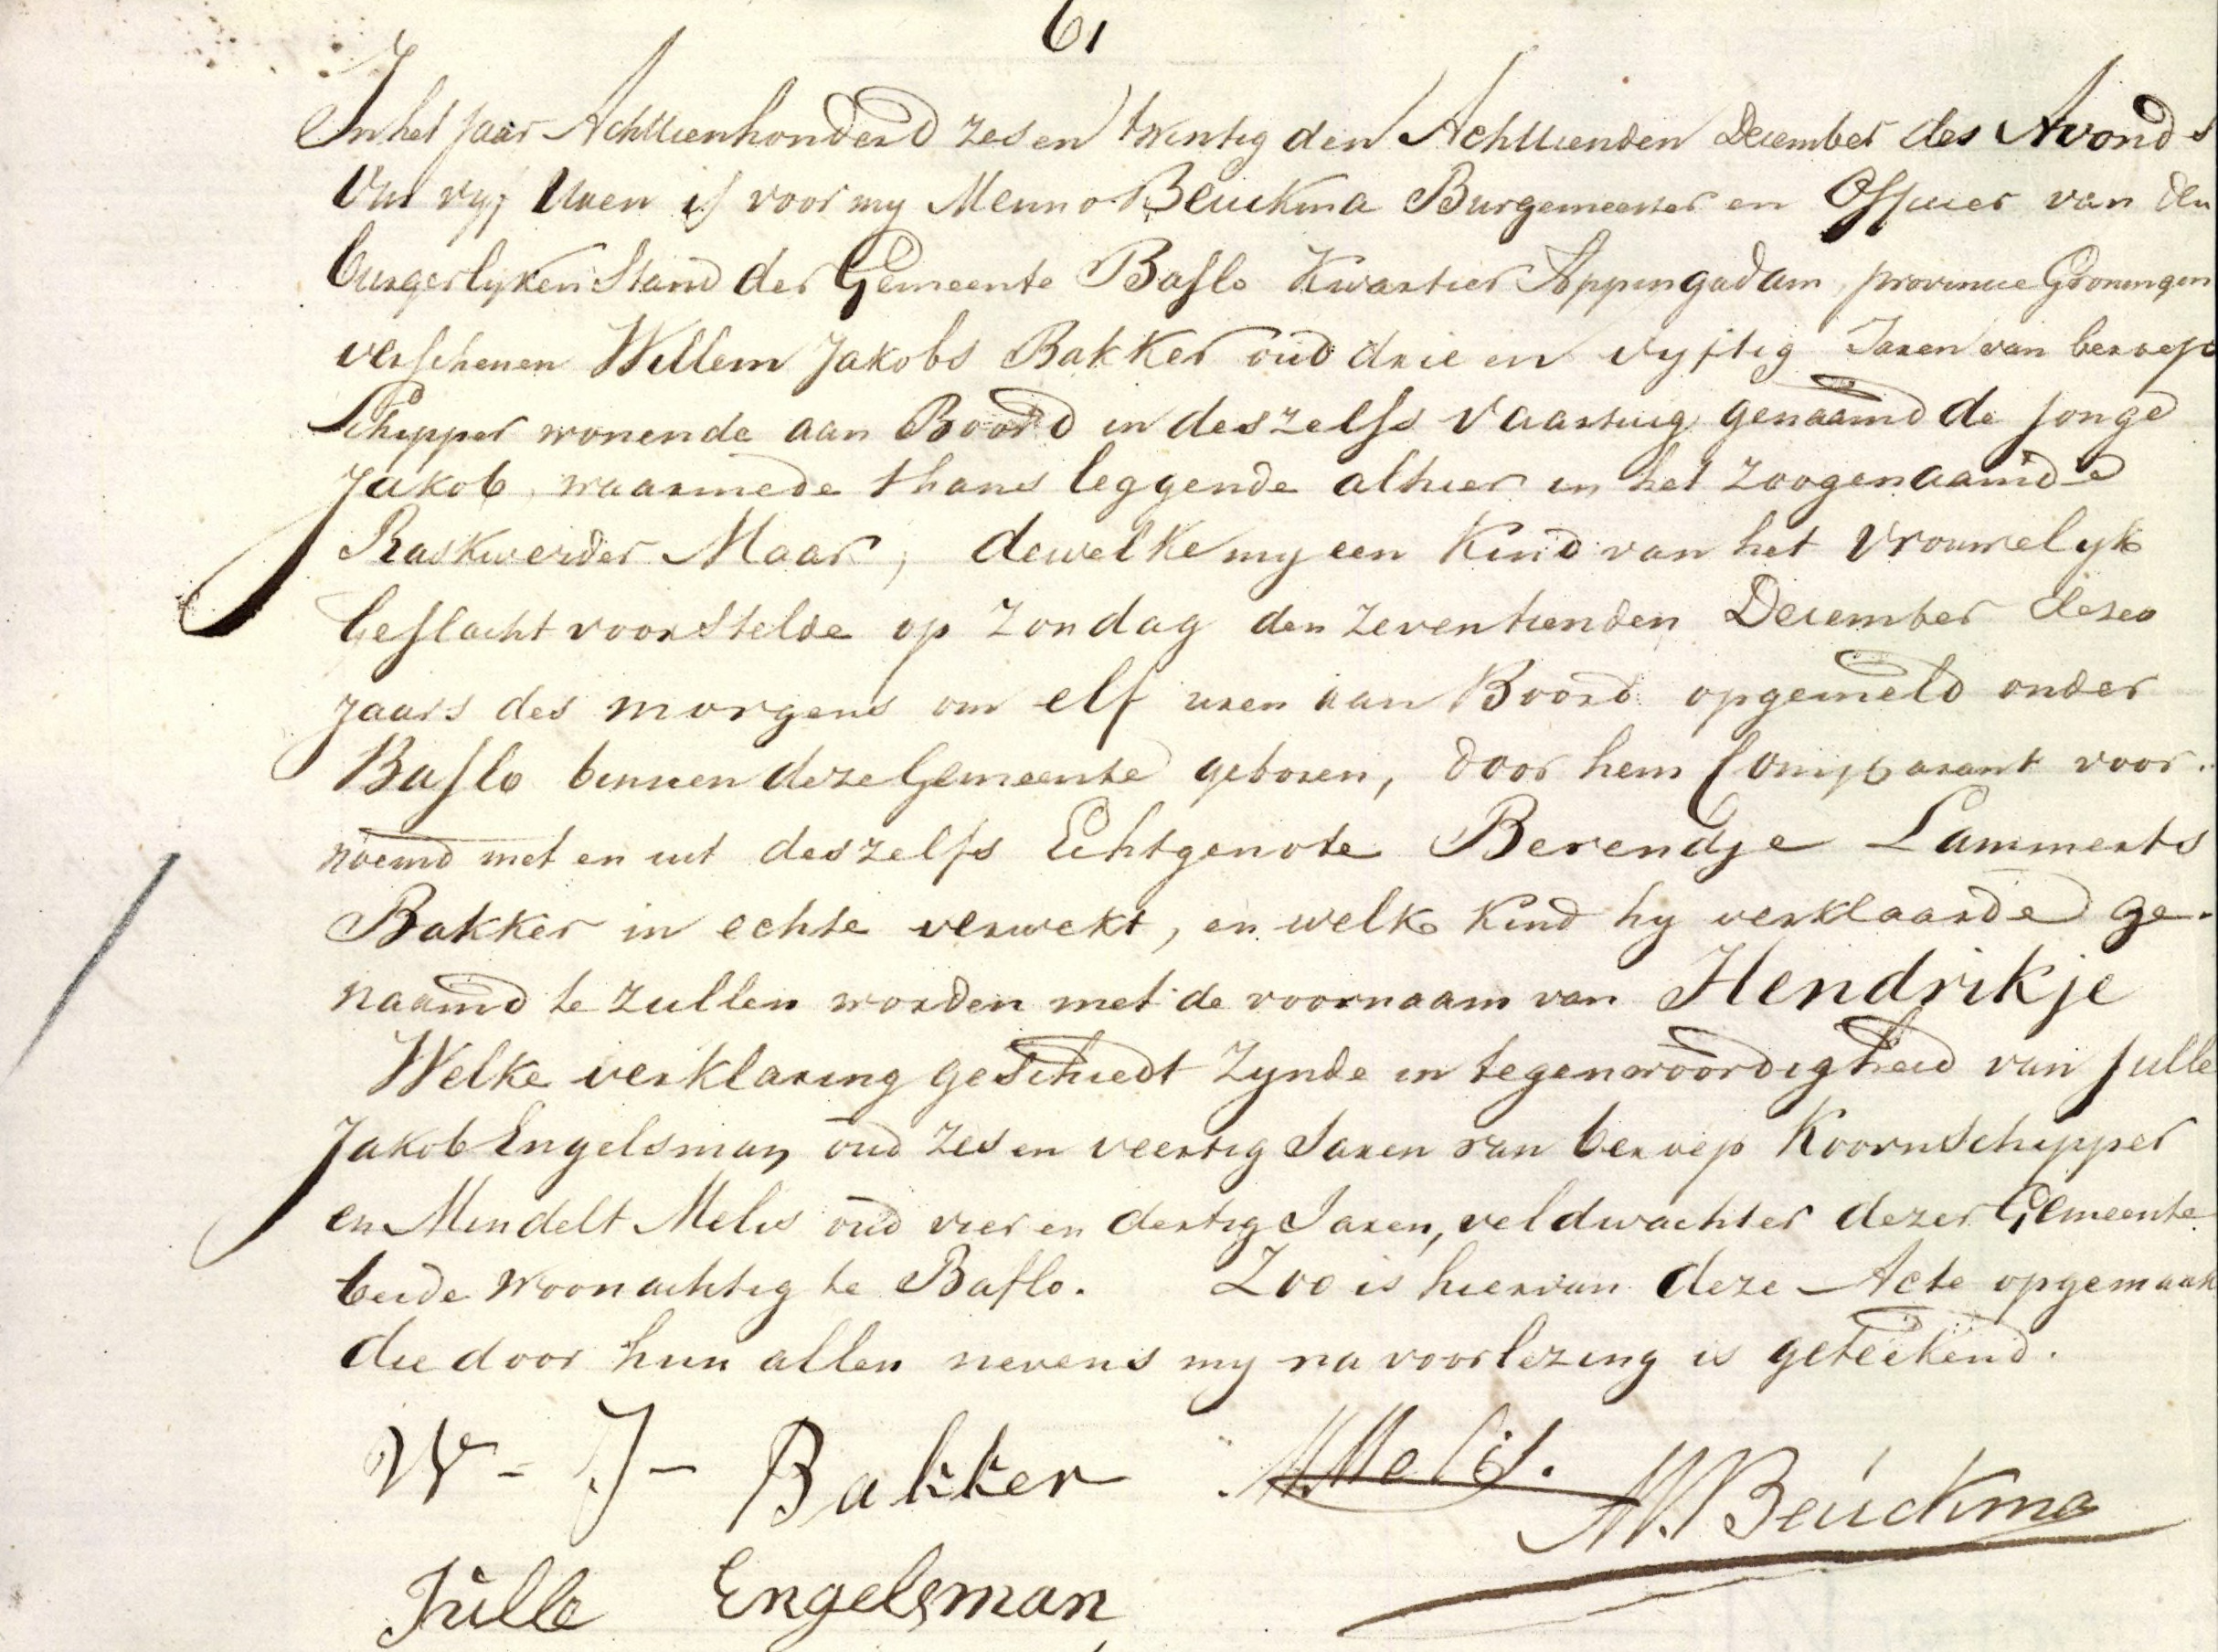 61
In het Jaar Achttienhonderd zes en twintig den Achttienden December des Avonds
Om vyf Uren is voor my Menno Beuckma Burgemeester en Officier van den
burgerlyken Stand der Gemeente Baflo Kwartier Appingadam, provincie Groningen
verschenen Willem Jakobs Bakker oud drie en vyftig Jaren van beroep
Schipper wonende aan Boord in deszelfs Vaartuig genaamd de Jonge
Jakob, waarmede thans leggende alhier in het Zoogenaamde
Raskwerder Maar, dewelke my een Kind van het Vrouwelyk
Geslacht voorstelde op Zondag den zeventienden December dezes
Jaars des morgens om elf uren aan Boord opgemeld onder
Baflo binnen deze Gemeente geboren, door hem Comparant voor-
noemd met en uit deszelfs Echtgenote Berendje Lammerts
Bakker in echte verwekt, en welk Kind hy verklaarde ge-
naamd te zullen worden met de voornaam van Hendrikje
Welke verklaring geschiedt Zynde in tegenwoordigheid van Julle
Jakob Engelsman oud zes en veertig Jaren van beroep Koornschipper
en Mindelt Melis oud vier en dertig Jaren, veldwachter dezer Gemeente
beide woonachtig te Baflo. Zoo is hiervan deze Acte opgemaakt
die door hun allen nevens my na voorlezing is geteekend.
W - J - Bakker M Melis. M. Beuckma
Julle Engelsman